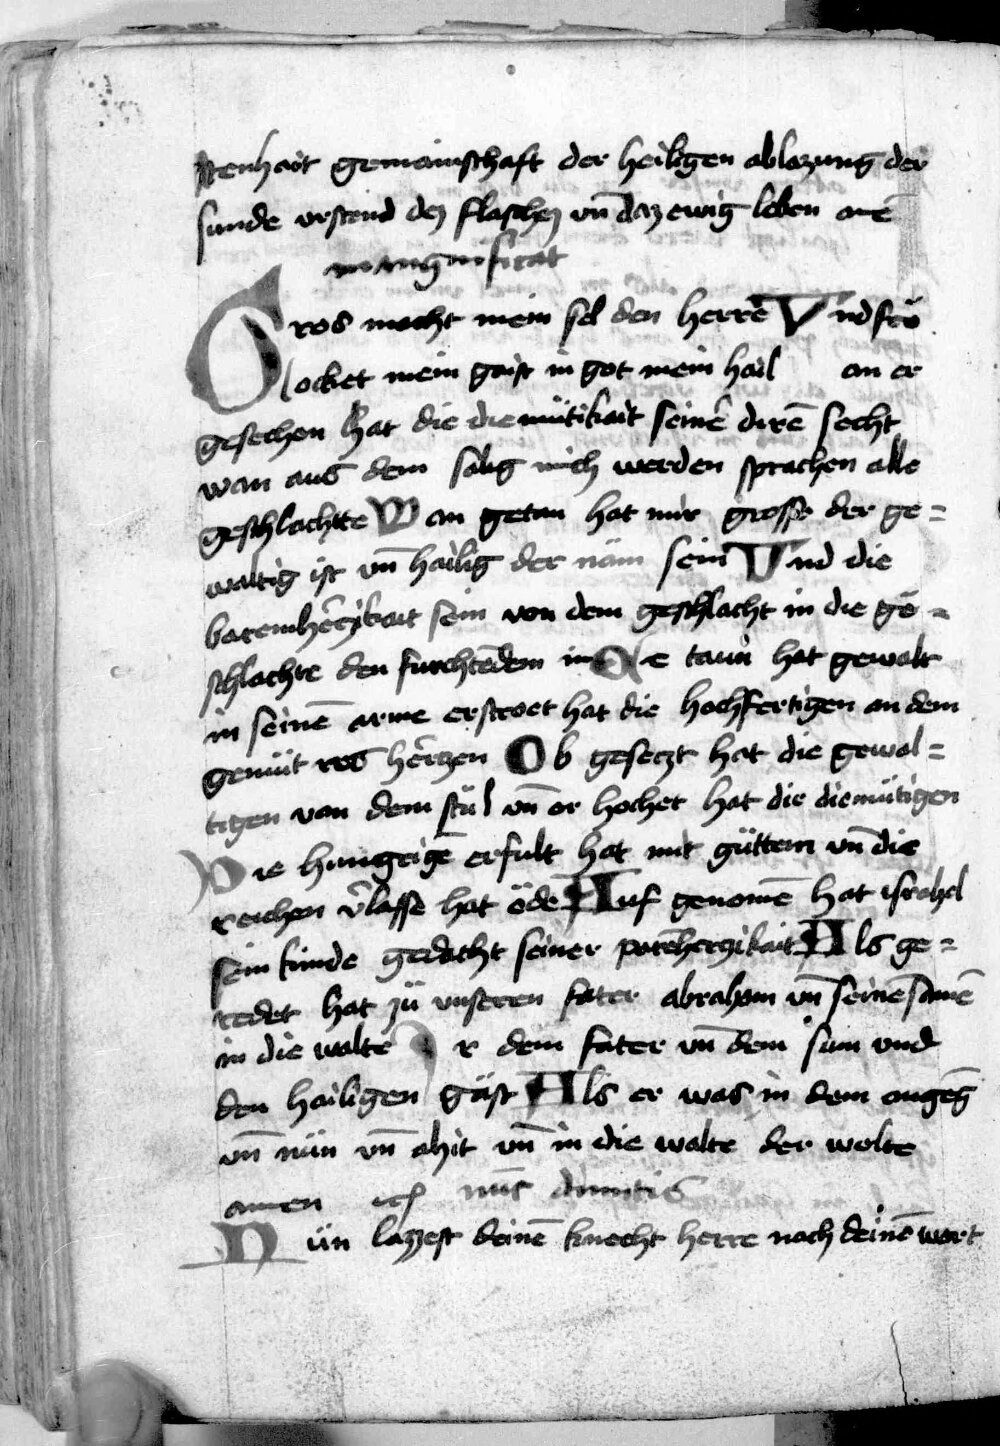 stenhait gemainschaft der heiligen ablazung der
sunde vrstend dez flaschez vn̄ daz ewig leben amē
magnificat
Gros macht mein sel den herrē Vnd frö
locket mein gaist in got mein hail an er
gesechen hat die diemütikait seinē dirē secht
wan aus dem sälig mich werden sprachen alle
geschlachtte Wan getan hat mir grosse der ge=
waltig ist vn̄ hailig der nam sein Vnd die
baremhēczikait sein von dem geschlacht in die ge=
schlachte den furchtēdem in De taün hat gewalt
in seinē arme erstroet hat die hochfertigen an dem
gemüt irs hērczen Ob geseczt hat die gewal=
tigen von dem stül vn̄ er hochet hat die diemütigen
Die hungeigē erfult hat mit güttem vn̄ die
reichen v̄lasse hat öde Auf genomē hat israhel
sein kinde gedacht seiner parēherczikait Als ge=
redet hat zü vnseren fater abraham vn̄ seinē samē
in die walte Er dem fater vn̄ dem sun vnd
den hailigen gäist Als er was in dem angeḡ
vn̄ nün vn̄ alzit vn̄ in die walte der welte
amen nūc dimitis
Nün lazzest deinē knecht herre nach deinē wort